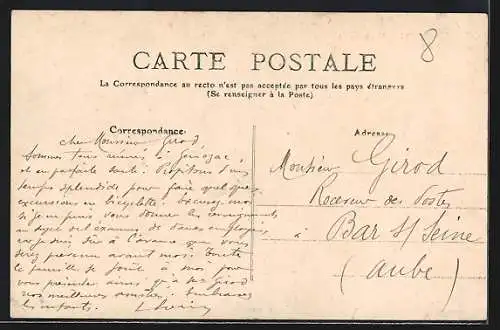 8
CARTE POSTALE
La Correspondance au recto n'est pas acceptée par tous les pays étrangers
(Se renseigner à la Poste)
Correspondance
Adresse
cher Monsieur Girod
Sommes tous réunis à
et en parfaite santé. Profitons d'un
temps splendide pour faire quelques
excursions en bicyclette.
si je puis vous donner les renseignements
au sujet des examens de
car je suis sûr à l'avance que vous
serez prévenu avant moi. Toute
la famille se joint à moi pour
vous présenter ainsi qu'à Me Girod
nos meilleures amitiés. Embrassez
les enfants.
Monsieur Girod
Receveur des Postes
à Bar s/ Seine
(Aube)